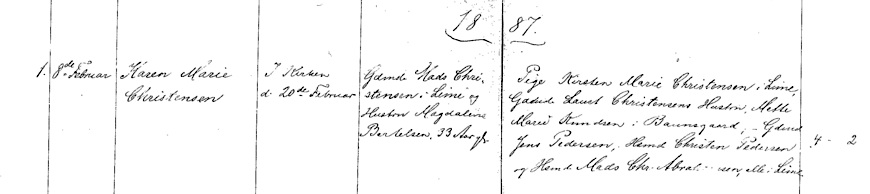 18 87.
1. 8de Februar
Karen Marie
Christensen
I Kirken
d. 20de Februar
Gdmd Mads Chri-
stensen i Lime og
Hustru Magdalene
Bertelsen, 33 Aar gl.
Pige Kirsten Marie Christensen i Lime,
Gaardmd Laust Christensens Hustru, Mette
Marie Knudsen i Baunsgaard, Gdmd
Jens Pedersen, Hsmd Christen Pedersen
og Hsmd Mads Chr. alle i Lime.
4 - 2